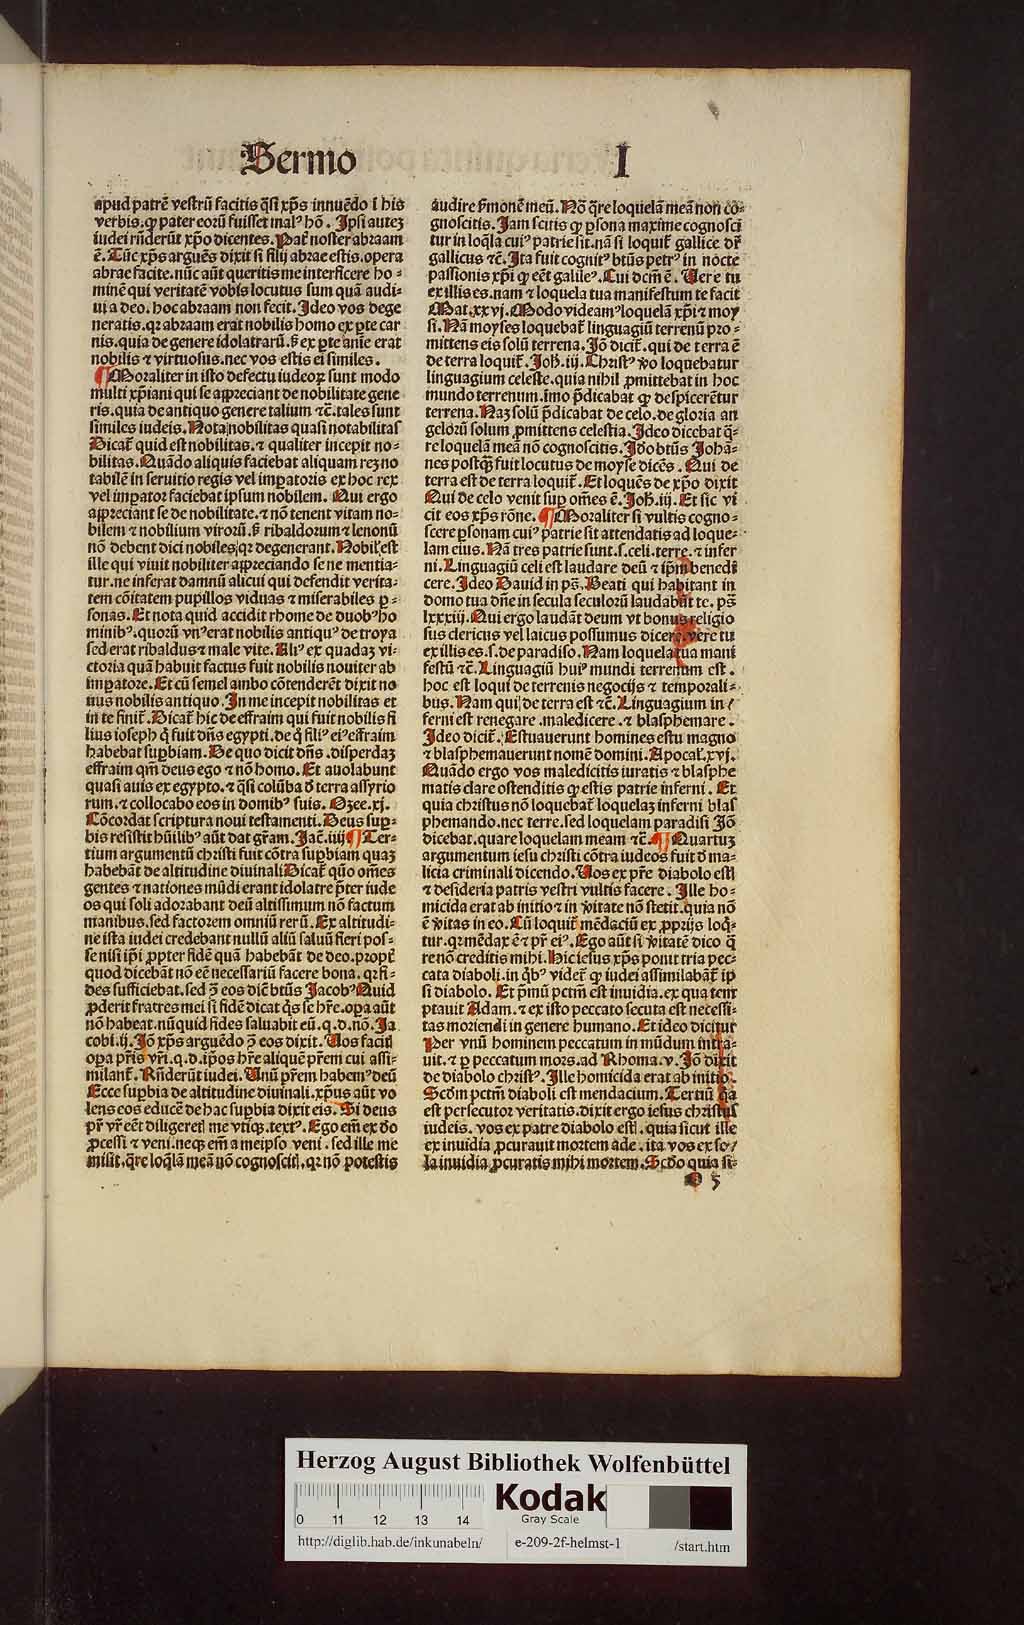 Sermo I
apud patrē vestrū facitis q̄si xp̄s innuēdo ī his
verbis. ꝙ pater eorū fuisset malꝰ hō. Ipsi autez
iudei rn̄derūt xp̄o dicentes. Pat̄ noster abraam
ē. Tūc xp̄s arguēs dixit si filij abrae estis. opera
abrae facite. nūc aūt queritis me interficere ho-
minē qui veritatē vobis locutus sum quā audi-
ui a deo. hoc abraam non fecit. Ideo vos dege
neratis. qꝛ abraam erat nobilis homo ex ꝑte car
nis. quia de genere idolatraꝝ. sꝫ ex ꝑte aīe erat
nobilis ⁊ virtuosus. nec vos estis ei similes.
¶ Moraliter in isto defectu iudeoꝝ sunt modo
multi xp̄iani qui se appreciant de nobilitate gene
ris. quia de antiquo genere talium ⁊c̄. tales sunt
similes iudeis. Nota nobilitas quasi notabilitas
Dicat̄ quid est nobilitas. ⁊ qualiter incepit no-
bilitas. Quādo aliquis faciebat aliquam rez no
tabilē in seruitio regis vel impatoris ex hoc rex
vel impator faciebat ipsum nobilem. Qui ergo
appreciant se de nobilitate. ⁊ nō tenent vitam no-
bilem ⁊ nobilium virorū. sꝫ ribaldorum ⁊ lenonū
nō debent dici nobiles qꝛ degenerant. Nobil' est
ille qui viuit nobiliter appreciando se ne mentia-
tur. ne inferat damnū alicui qui defendit verita-
tem cōitatem pupillos viduas ⁊ miserabiles ꝑ-
sonas. Et nota quid accidit rhome de duobꝰ ho
minibꝰ. quorū vnꝰ erat nobilis antiquꝰ de troya
sed erat ribaldus ⁊ male vite. Aliꝰ ex quadaz vi-
ctoria quā habuit factus fuit nobilis nouiter ab
impatore. Et cū semel ambo cōtenderēt dixit no
uus nobilis antiquo. In me incepit nobilitas et
in te finit̄. Dicat̄ hic de effraim qui fuit nobilis fi
lius ioseph q̄ fuit dn̄s egypti. de q̄ filiꝰ eiꝰ effraim
habebat suꝑbiam. De quo dicit dn̄s. disperdaz
effraim qm̄ deus ego ⁊ nō homo. Et auolabunt
quasi auis ex egypto. ⁊ q̄si colūba d̄ terra assyrio
rum. ⁊ collocabo eos in domibꝰ suis. Ozee. xj.
Cōcordat scriptura noui testamenti. Deus suꝑ-
bis resistit hūilibꝰ aūt dat gr̄am. Jac̄. iiij ¶ Ter-
tium argumentū christi fuit cōtra suꝑbiam quaz
habebāt de altitudine diuinali Dicat̄ quō om̄es
gentes ⁊ nationes mūdi erant idolatre p̄ter iude
os qui soli adorabant deū altissimum nō factum
manibus. sed factorem omniū rerū. Ex altitudi-
ne ista iudei credebant nullū aliū saluū fieri pos-
se nisi ip̄i ꝓpter fidē quā habebāt de deo. propt̄
quod dicebāt nō eē necessariū facere bona. qꝛ fi-
des sufficiebat. sed ꝯ̄ eos dic̄ btūs Jacobꝰ Quid
ꝓderit fratres mei si fidē dicat q̄s se hr̄e. oꝑa aūt
nō habeat. nūquid fides saluabit eū. q. d. nō. Ja
cobi. ij. Jō xp̄s arguēdo ꝯ̄ eos dixit. Uos facit̄
oꝑa pr̄is vr̄i. q. d. ip̄os hr̄e aliquē pr̄em cui assi-
milant̄. Rn̄derūt iudei. Unū pr̄em habemꝰ deū
Ecce suꝑbia de altitudine diuinali. xp̄us aūt vo
lens eos educē de hac suꝑbia dixit eis. Si deus
pr̄ vr̄ eēt diligeretꝭ me vtiqꝫ. textꝰ. Ego em̄ ex d̄o
ꝓcessi ⁊ veni. neqꝫ em̄ a meipso veni. sed ille me
misit. q̄re loq̄lā meā nō cognoscitꝭ. qꝛ nō potestis
audire s̄monē meū. Nō q̄re loquelā meā non co-
gnoscitis. Jam scitis ꝙ ꝑsona maxime cognosci
tur in loq̄la cuiꝰ patrie sit. nā si loquit̄ gallice dr̄
gallicus ⁊c̄. Ita fuit cognitꝰ btūs petrꝰ in nocte
passionis xp̄i ꝙ eēt galileꝰ. Cui dcm̄ ē. Uere tu
ex illis es. nam ⁊ loquela tua manifestum te facit
Mat. xxvj. Modo videamꝰ loquelā xp̄i ⁊ moy
si. Nā moyses loquebat̄ linguagiū terrenū pro-
mittens eis solū terrena. Jō dicit̄. qui de terra ē
de terra loquit̄. Joh̄. iij. Christꝰ v̄o loquebatur
linguagium celeste. quia nihil ꝓmittebat in hoc
mundo terrenum. īmo p̄dicabat ꝙ despicerētur
terrena. Naz solū p̄dicabat de celo. de gloria an
gelorū solum ꝓmittens celestia. Ideo dicebat q̄-
re loquelā meā nō cognoscitis. Jdō btūs Johā-
nes postq̄ꝫ fuit locutus de moyse dicēs. Qui de
terra est de terra loquit̄. Et loquēs de xp̄o dixit
Qui de celo venit suꝑ om̄es ē. Joh̄. iij. Et sic vi
cit eos xp̄s rōne. ¶ Moraliter si vultis cogno-
scere ꝑsonam cuiꝰ patrie sit attendatis ad loque-
lam eius. Nā tres patrie sunt. s. celi. terre. ⁊ infer
ni. Linguagiū celi est laudare deū ⁊ ip̄m benedi
cere. Ideo Dauid in ps̄. Beati qui habitant in
domo tua dn̄e in secula seculorū laudabūt te. ps̄
lxxxiij. Qui ergo laudāt deum vt bonus religio
sus clericus vel laicus possumus dicere. vere tu
ex illis es. s. de paradiso. Nam loquela tua mani
festū ⁊c̄. Linguagiū huiꝰ mundi terrenum est.
hoc est loqui de terrenis negocijs ⁊ temporali-
bus. Nam qui de terra est ⁊c̄. Linguagium in/
ferni est renegare. maledicere. ⁊ blasphemare.
Ideo dicit̄. Estuauerunt homines estu magno
⁊ blasphemauerunt nomē domini. Apocal̄. xvj.
Quādo ergo vos maledicitis iuratis ⁊ blasphe
matis clare ostenditis ꝙ estis patrie inferni. Et
quia christus nō loquebat̄ loquelaz inferni blas
phemando. nec terre. sed loquelam paradisi Jō
dicebat. quare loquelam meam ⁊c̄. ¶ Quartuz
argumentum iesu christi cōtra iudeos fuit d̄ ma-
licia criminali dicendo. Uos ex pr̄e diabolo estꝭ
⁊ desideria patris vestri vultis facere. Ille ho-
micida erat ab initio ⁊ in v̄itate nō stetit. quia nō
ē v̄itas in eo. Cū loquit̄ mēdaciū ex ꝓprijs loq̄-
tur. qꝛ mēdax ē ⁊ pr̄ eiꝰ. Ego aūt si v̄itatē dico q̄
re nō creditis mihi. Hic iesus xp̄s ponit tria pec-
cata diaboli. in q̄bꝰ videt̄ ꝙ iudei assimilabāt̄ ip
si diabolo. Et p̄mū pctm̄ est inuidia. ex qua tem
ptauit Adam. ⁊ ex isto peccato secuta est necessi-
tas moriendi in genere humano. Et ideo dicitur
Per vnū hominem peccatum in mūdum intra-
uit. ⁊ ꝑ peccatum mors. ad Rhoma. v. Jō dixit
de diabolo christꝰ. Ille homicida erat ab initio.
Scdm̄ pctm̄ diaboli est mendacium. Tertiū q̄a
est persecutor veritatis. dixit ergo iesus christus
iudeis. vos ex patre diabolo estꝭ. quia sicut ille
ex inuidia ꝓcurauit mortem ade. ita vos ex so/
la inuidia ꝓcuratis mihi mortem. Scdo quia si-
5
Herzog August Bibliothek Wolfenbüttel
0 11 12 13 14
Kodak
Gray Scale
http://diglib.hab.de/inkunabeln/ e-209-2f-helmst-1 /start.htm